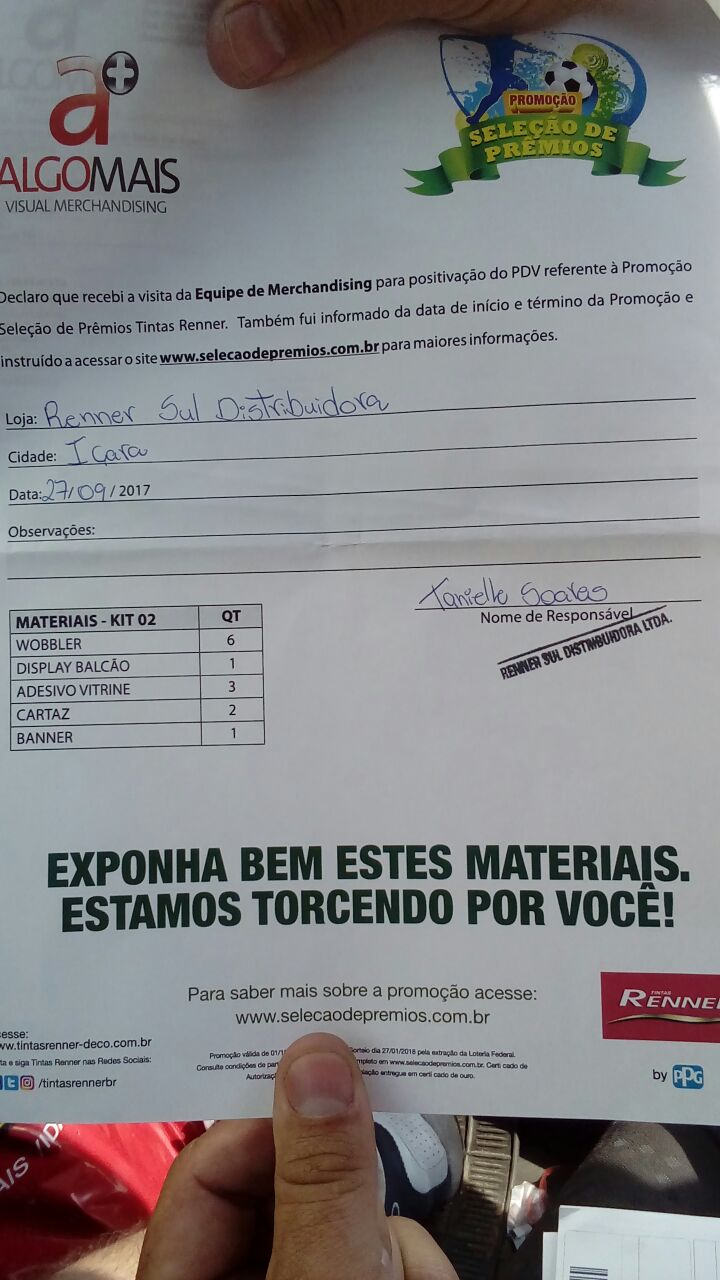 a+
ALGOMAIS
VISUAL MERCHANDISING
PROMOÇÃO
SELEÇÃO DE
PRÊMIOS
Declaro que recebi a visita da Equipe de Merchandising para positivação do PDV referente à Promoção
Seleção de Prêmios Tintas Renner. Também fui informado da data de início e término da Promoção e
instruído a acessar o site www.selecaodepremios.com.br para maiores informações.
Loja: Renner Sul Distribuidora
Cidade: Içara
Data: 27/09/2017
Observações:
Tanielle Soares
Nome de Responsável
RENNER SUL DISTRIBUIDORA LTDA.
MATERIAIS - KIT 02 QT
WOBBLER 6
DISPLAY BALCÃO 1
ADESIVO VITRINE 3
CARTAZ 2
BANNER 1
EXPONHA BEM ESTES MATERIAIS.
ESTAMOS TORCENDO POR VOCÊ!
Para saber mais sobre a promoção acesse:
www.selecaodepremios.com.br
TINTAS
RENNE
esse:
ww.tintasrenner-deco.com.br
ta e siga Tintas Renner nas Redes Sociais:
/tintasrennerbr
Promoção válida de 01/1 Sorteio dia 27/01/2018 pela extração da Loteria Federal.
Consulte condições de par mpleto em www.selecaodepremios.com.br. Certi cado de
Autorizaç lação entregue em certi cado de ouro.
by PPG